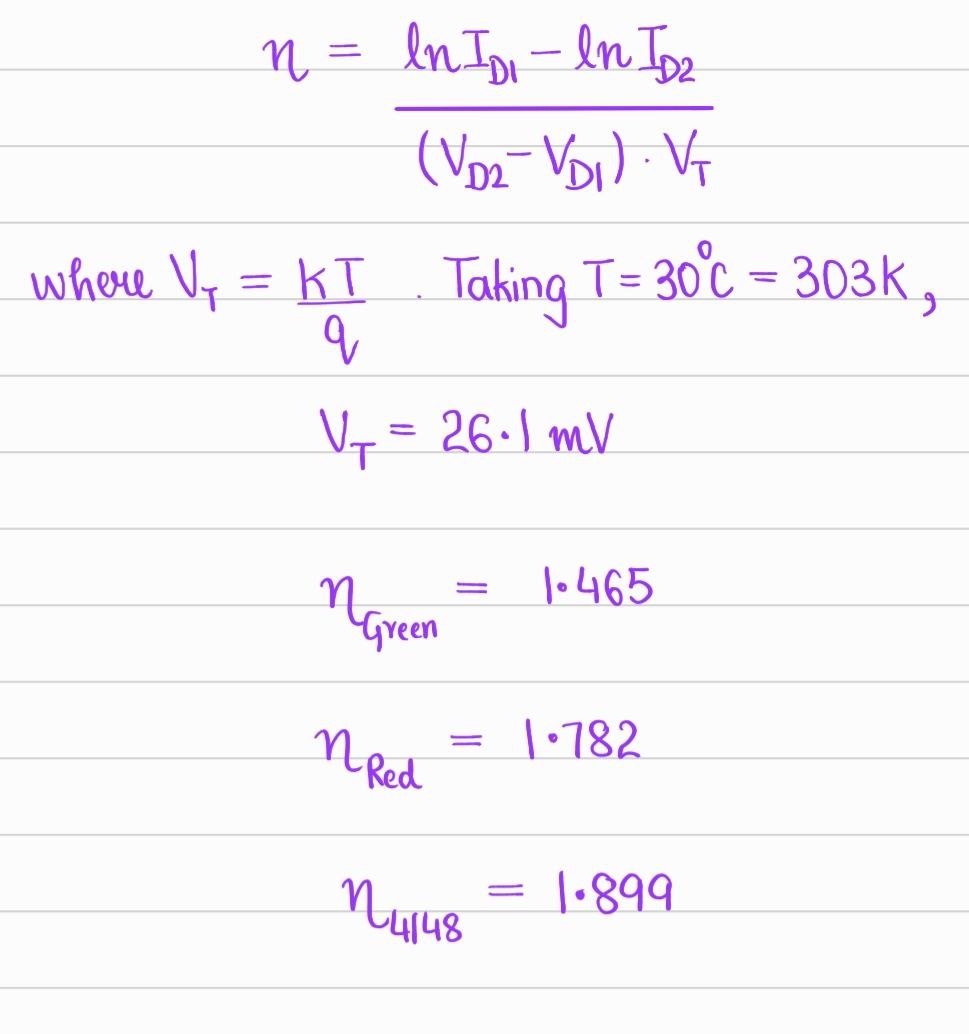 η = (ln I_D1 − ln I_D2) / ((V_D2 − V_D1) · V_T)
where V_T = kT/q . Taking T = 30°C = 303K,
V_T = 26.1 mV
η_Green = 1.465
η_Red = 1.782
η_4148 = 1.899